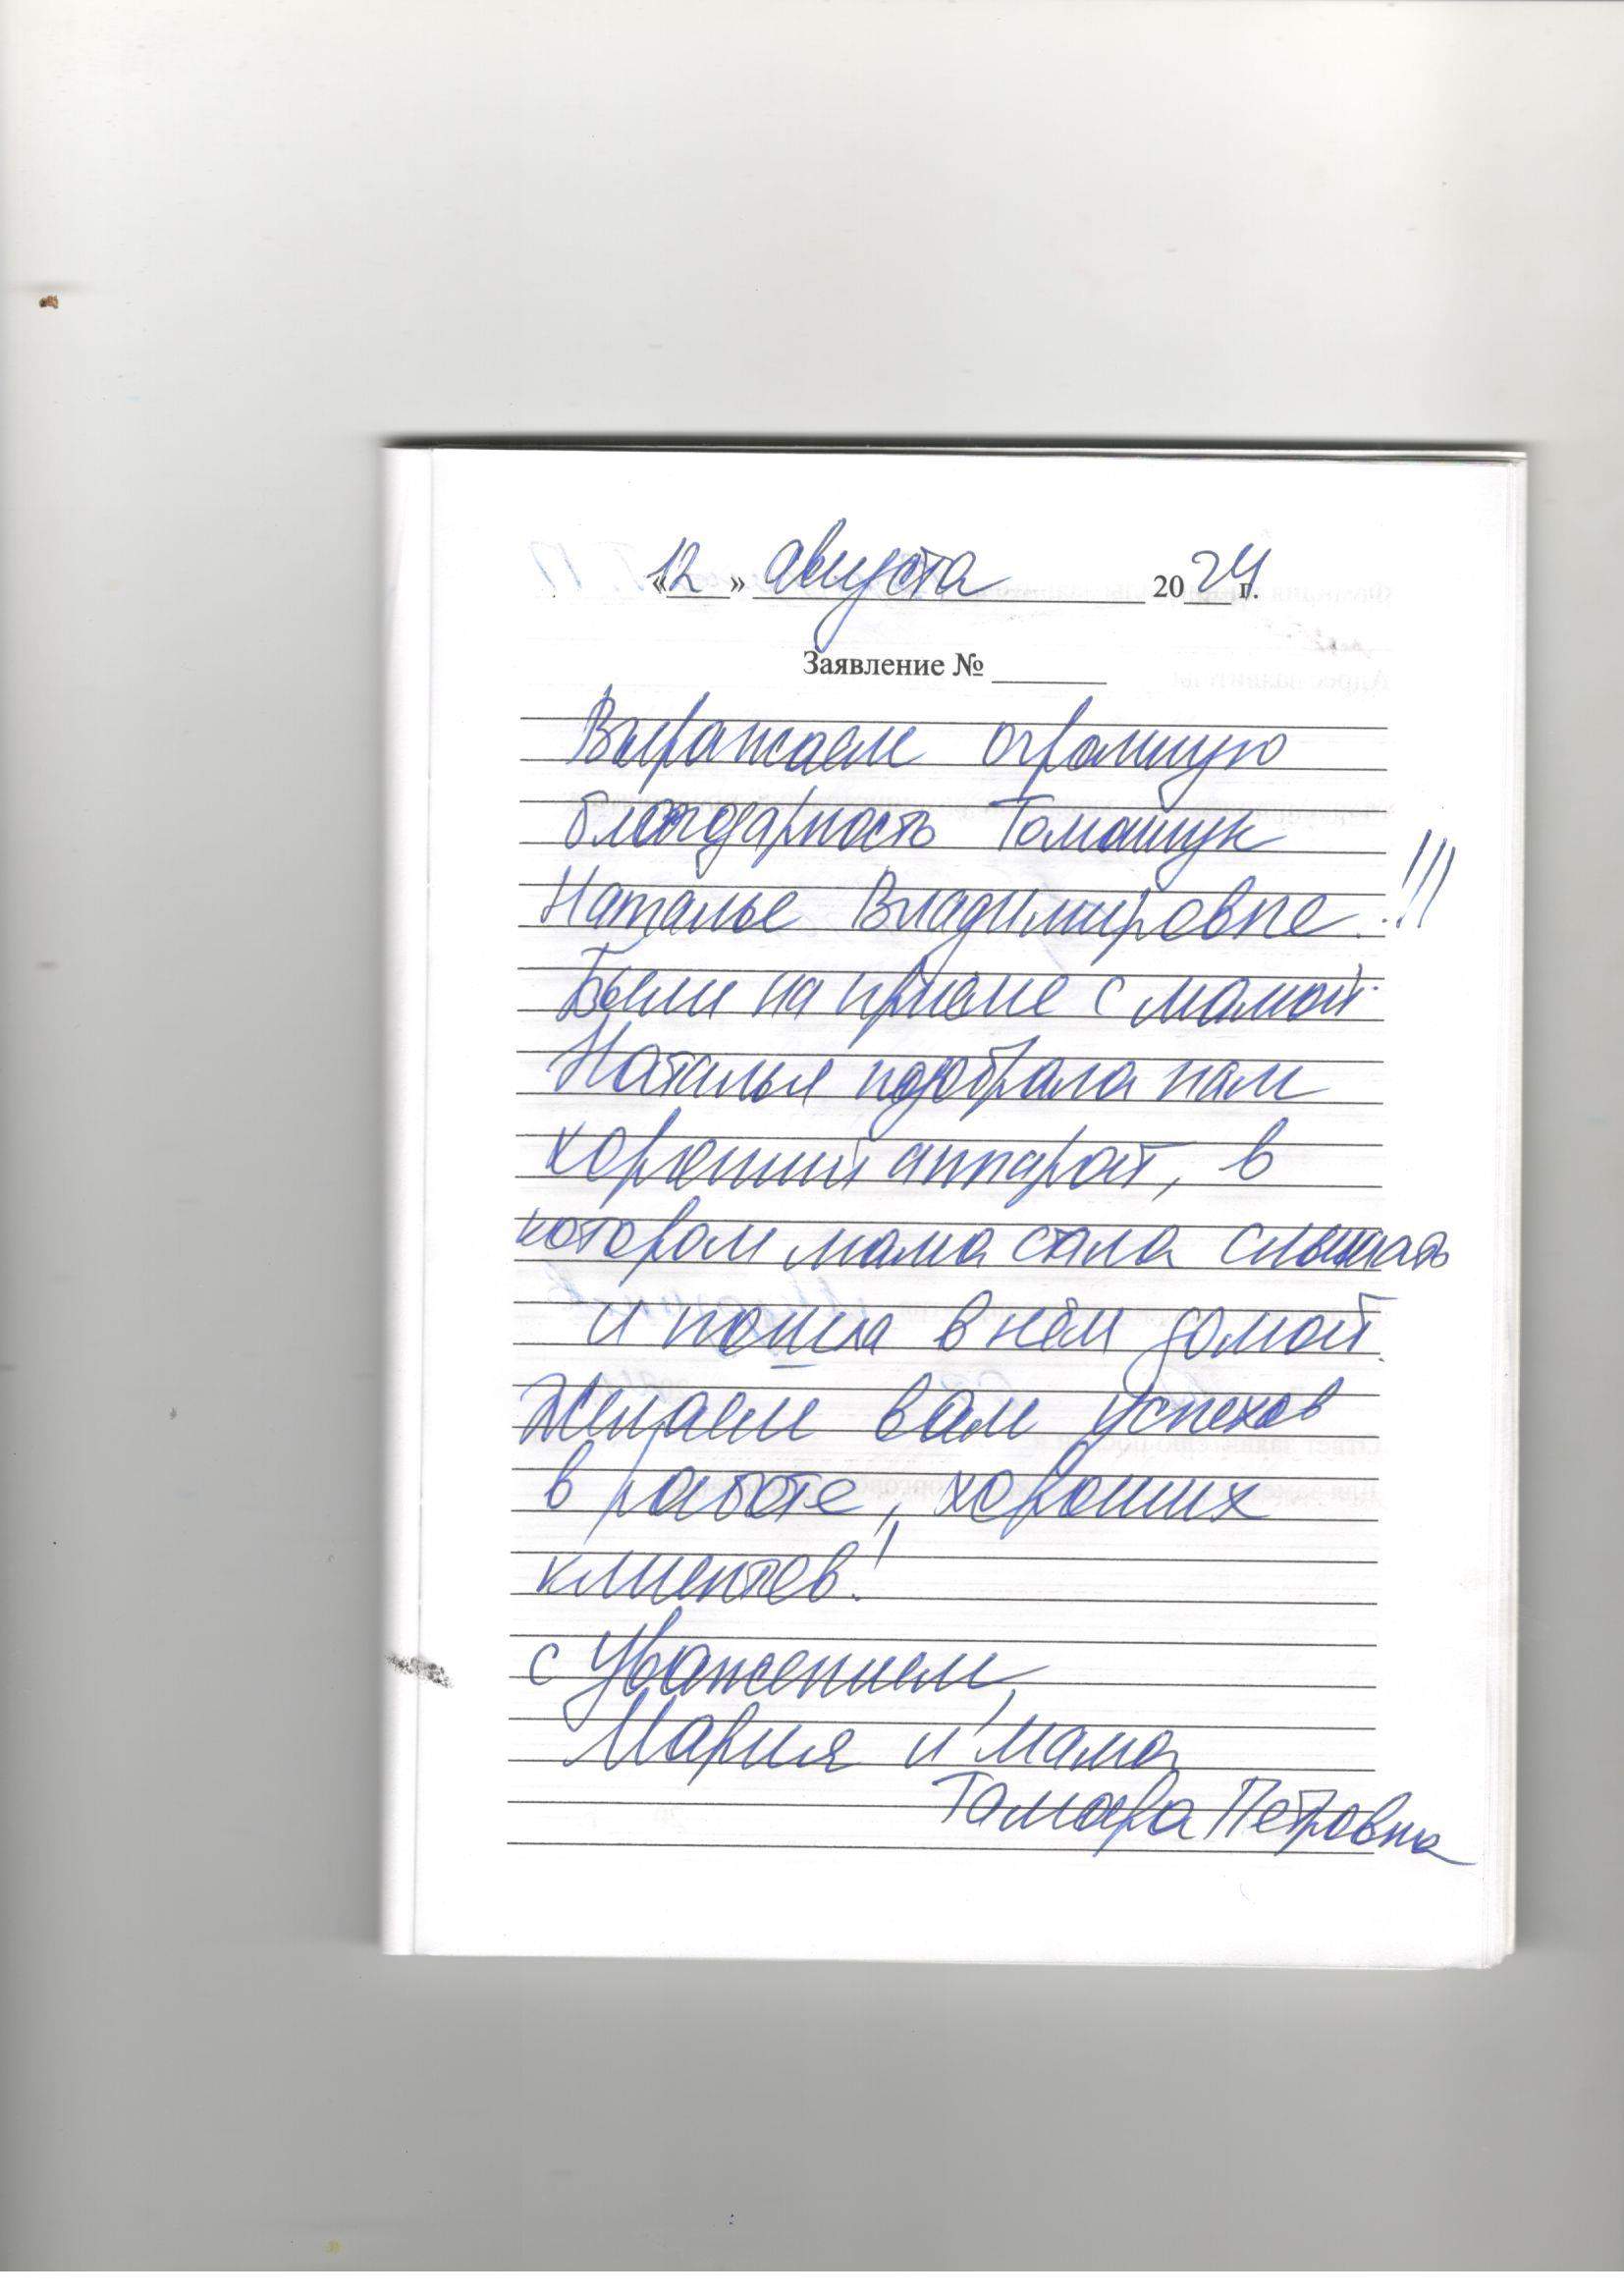 «12» августа 2024 г.
Заявление № ____
Выражаем огромную
благодарность Томашук
Наталье Владимировне!!!
Были на приеме с мамой.
Наталья подобрала нам
хороший аппарат, в
котором мама стала слышать
и пошла в нём домой.
Желаем вам успехов
в работе, хороших
клиентов!
с Уважением,
Мария и мама
Тамара Петровна